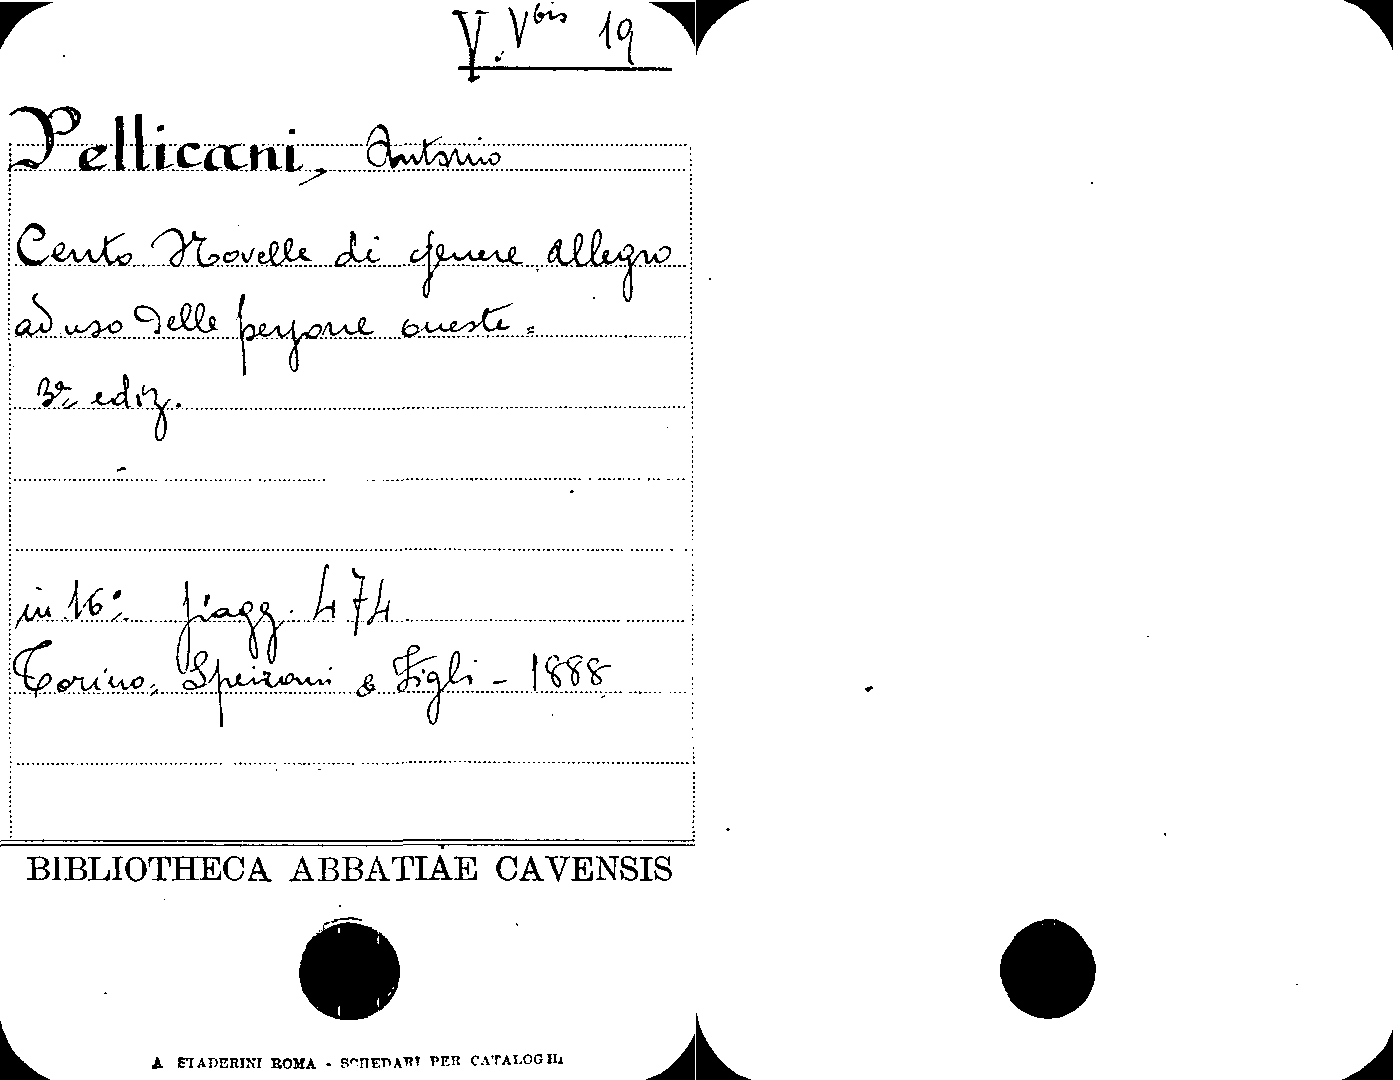 V. V bis 19
Pellicani, Antonio
Cento Novelle di genere allegro
ad uso delle persone oneste =
3ª ediz.
in 16º pagg. 474
Torino, Speirani & Figli - 1888
BIBLIOTHECA ABBATIAE CAVENSIS
A. STADERINI ROMA - SCHEDARI PER CATALOGHI